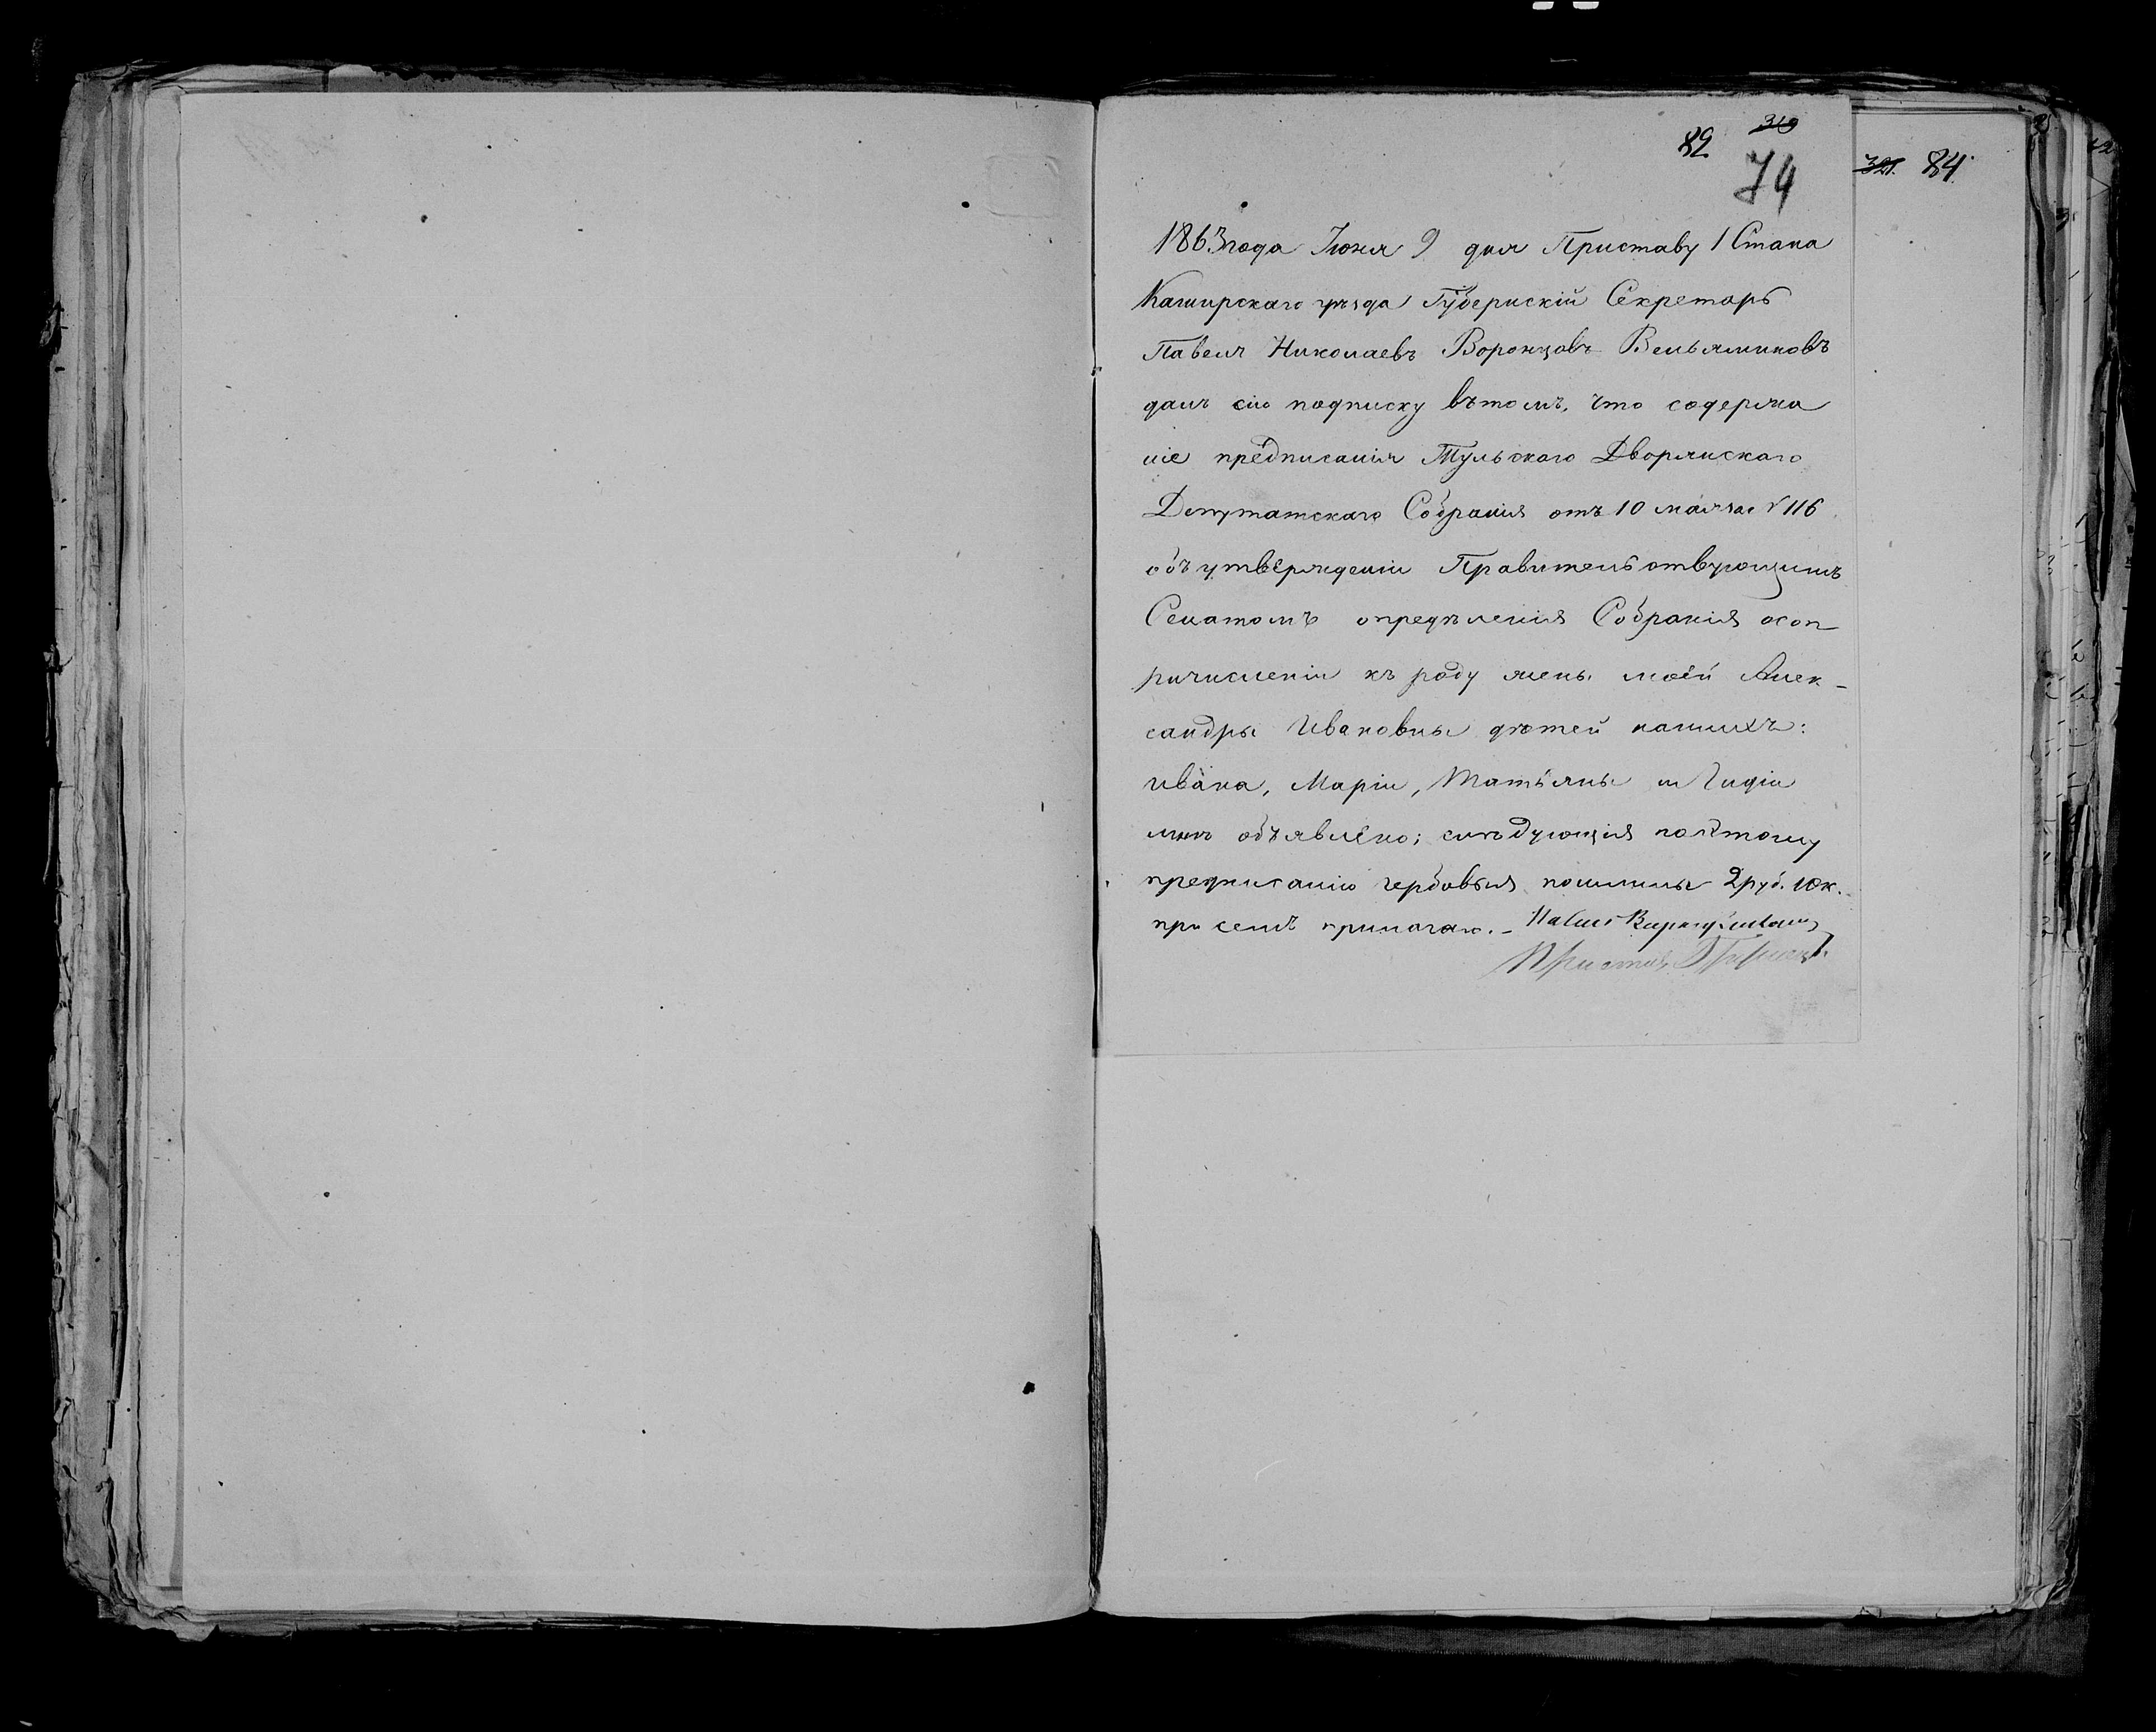 82 319
74
321. 84.
1863 года Июня 9 дня Приставу 1 Стана
Каширскаго уѣзда Губернскій Секретарь
Павелъ Николаевъ Воронцовъ Вельяминовъ
далъ сію подписку въ томъ, что содержа
ніе предписанія Тульскаго Дворянскаго
Депутатскаго Собранія отъ 10 мая за № 116
объ утвержденіи Правительствующимъ
Сенатомъ опредѣленія Собранія о соп
ричисленіи къ роду жены моей Алек-
сандры Ивановны дѣтей нашихъ:
Ивана, Маріи, Татьяны и Лидіи
мнѣ объявлено; слѣдующія по этому
предписанію гербовыя пошлины 2 руб. 10 к.
при семъ прилагаю. - Павелъ
Приставъ